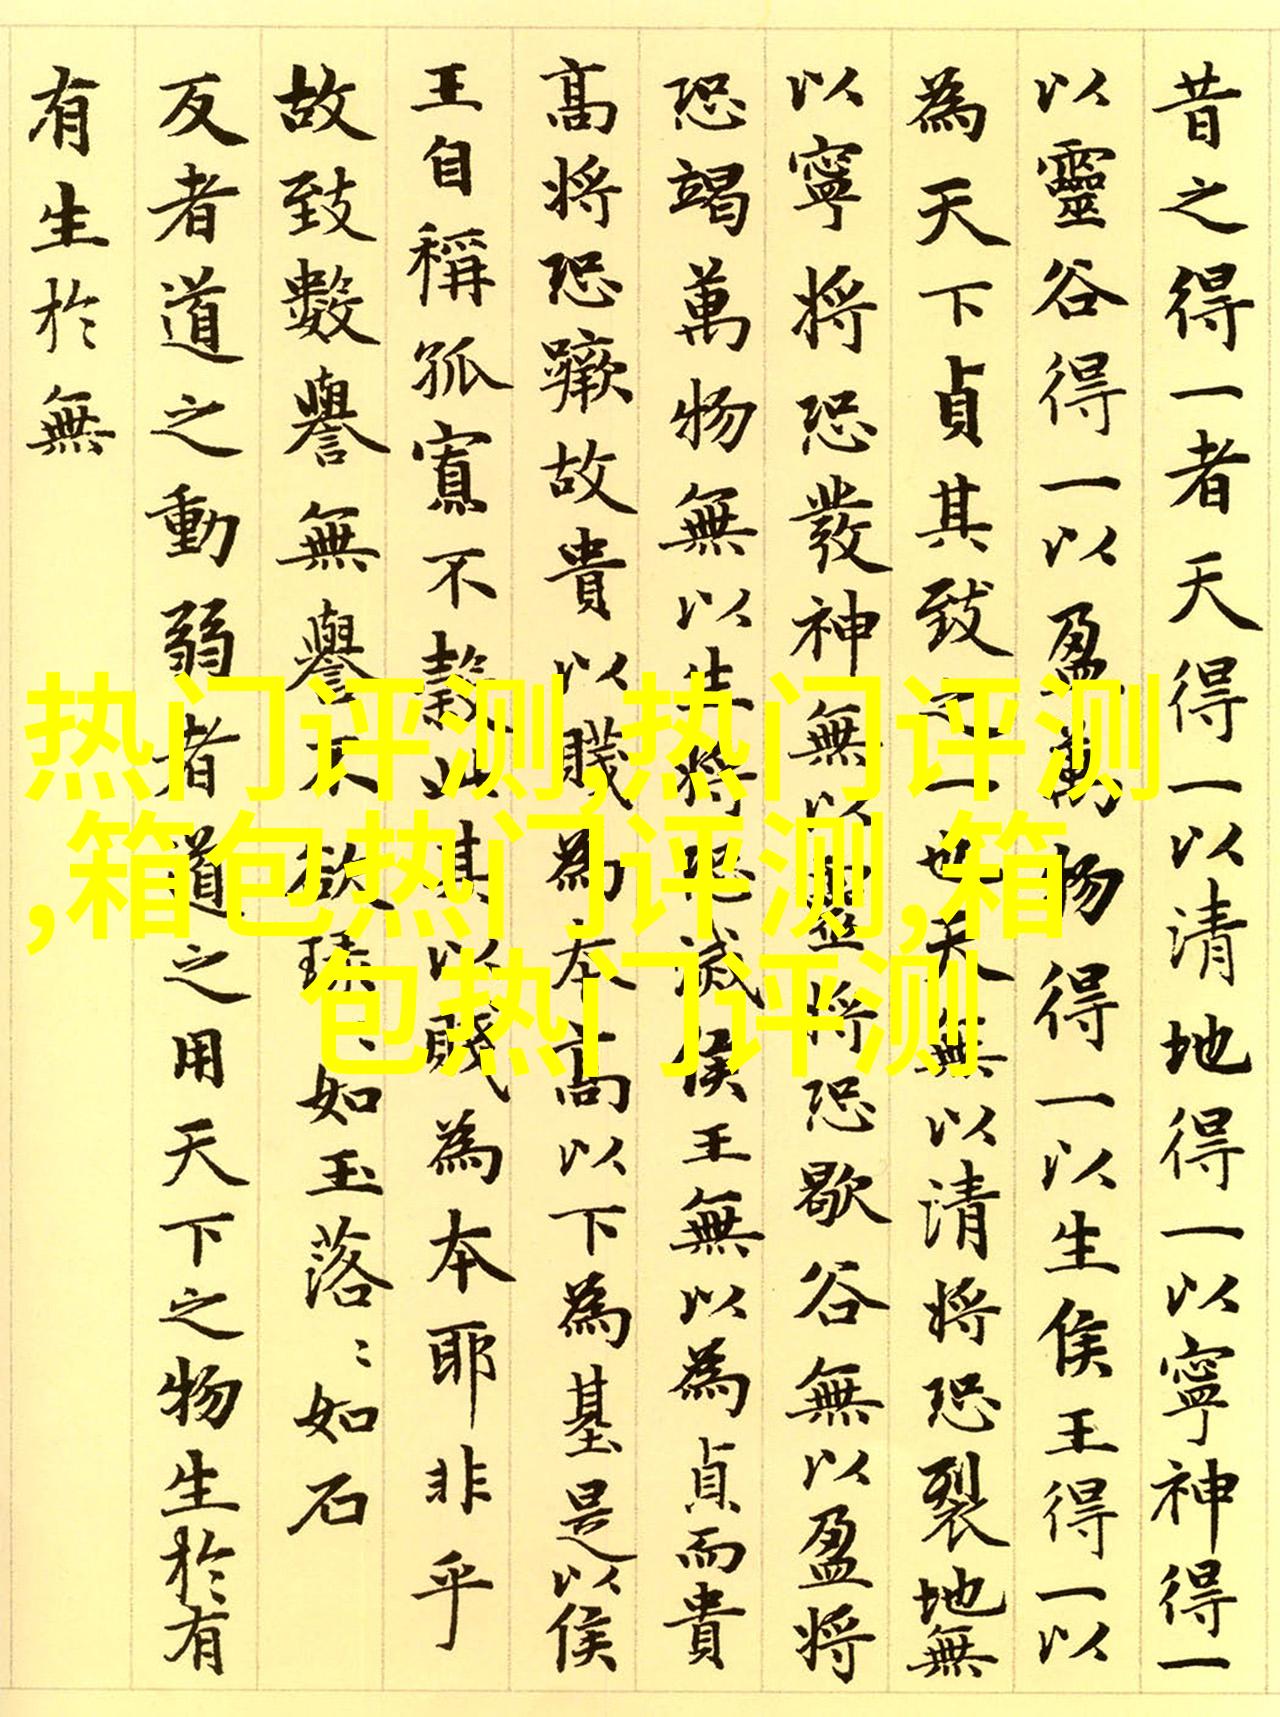 昔之得一者天得一以清地得一以寧神得一
以靈谷得一以盈萬物得一以生侯王得一以
為天下貞其致之一也天無以清將恐裂地無
以寧將恐發神無以靈將恐歇谷無以盈將
恐竭萬物無以生將恐滅侯王無以為貞而貴
高將恐蹶故貴以賤為本高以下為基是以侯
王自稱孤寡不穀此其以賤為本耶非乎
故致數譽無譽不欲琭〻如玉落〻如石
反者道之動弱者道之用天下之物生於有
有生於無
热门评测,热门评测
,箱包热门评测,箱
包热门评测